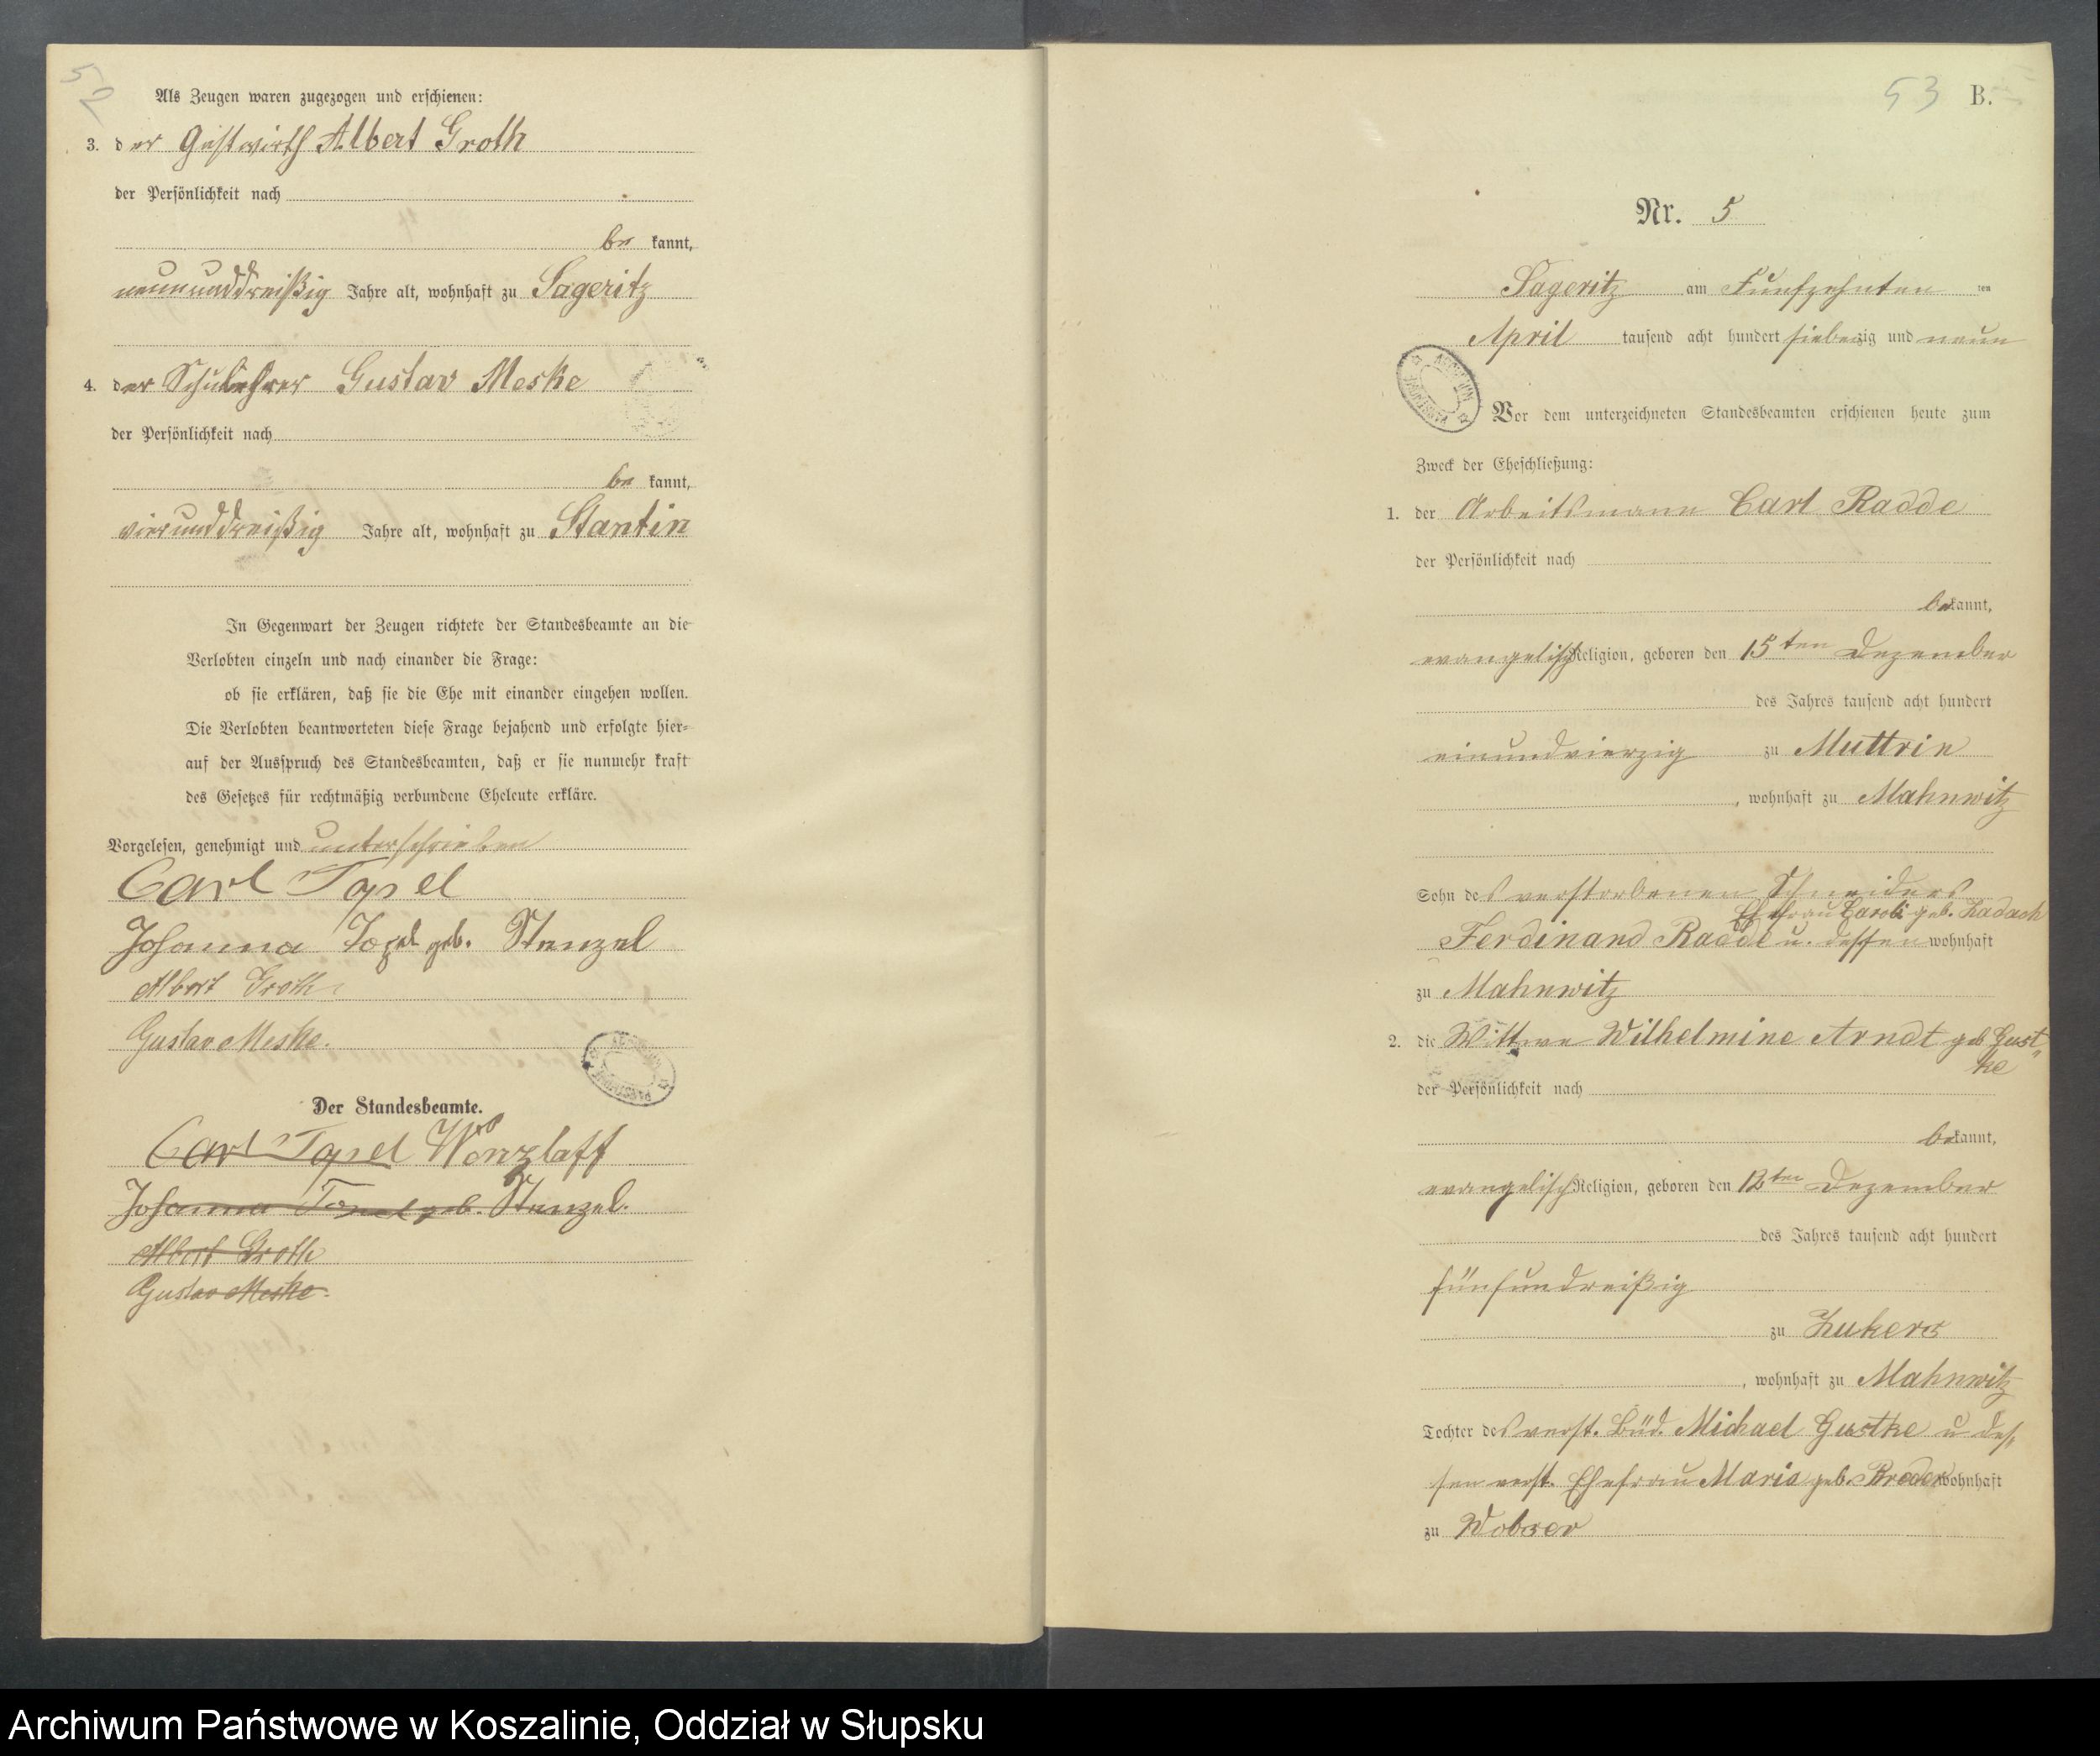 52
Als Zeugen waren zugezogen und erschienen:
3. der Gastwirth Albert Groth
der Persönlichkeit nach
be kannt,
neununddreißig Jahre alt, wohnhaft zu Sageritz
4. der Schullehrer Gustav Meske
der Persönlichkeit nach
be kannt,
vierunddreißig Jahre alt, wohnhaft zu Stantin
In Gegenwart der Zeugen richtete der Standesbeamte an die
Verlobten einzeln und nach einander die Frage:
ob sie erklären, daß sie die Ehe mit einander eingehen wollen.
Die Verlobten beantworteten diese Frage bejahend und erfolgte hier-
auf der Ausspruch des Standesbeamten, daß er sie nunmehr kraft
des Gesetzes für rechtmäßig verbundene Eheleute erkläre.
Vorgelesen, genehmigt und unterschrieben
Carl Topel
Johanna Topel geb. Stenzel
Albert Groth
Gustav Meske.
Der Standesbeamte.
Carl Topel Wenzlaff
Johanna Topel geb. Stenzel.
Albert Groth
Gustav Meske.
53 B.
Nr. 5
Sageritz am Fünfzehnten ten
April tausend acht hundert siebenzig und neun
Vor dem unterzeichneten Standesbeamten erschienen heute zum
Zweck der Eheschließung:
1. der Arbeitsmann Carl Radde
der Persönlichkeit nach
bekannt,
evangelisch Religion, geboren den 15ten Dezember
des Jahres tausend acht hundert
einundvierzig zu Muttrin
, wohnhaft zu Mahnwitz
Sohn des verstorbenen Schneiders
Ehefrau Carol. geb. Zadach
Ferdinand Radde u. dessen wohnhaft
zu Mahnwitz
2. die Wittwe Wilhelmine Arndt geb Gust
ke
der Persönlichkeit nach
bekannt,
evangelisch Religion, geboren den 12ten Dezember
des Jahres tausend acht hundert
fünfundreißig
zu Zukers
, wohnhaft zu Mahnwitz
Tochter des verst. Büd. Michael Gustke u des-
sen verst. Ehefrau Maria geb. wohnhaft
zu Wobser
Archiwum Państwowe w Koszalinie, Oddział w Słupsku